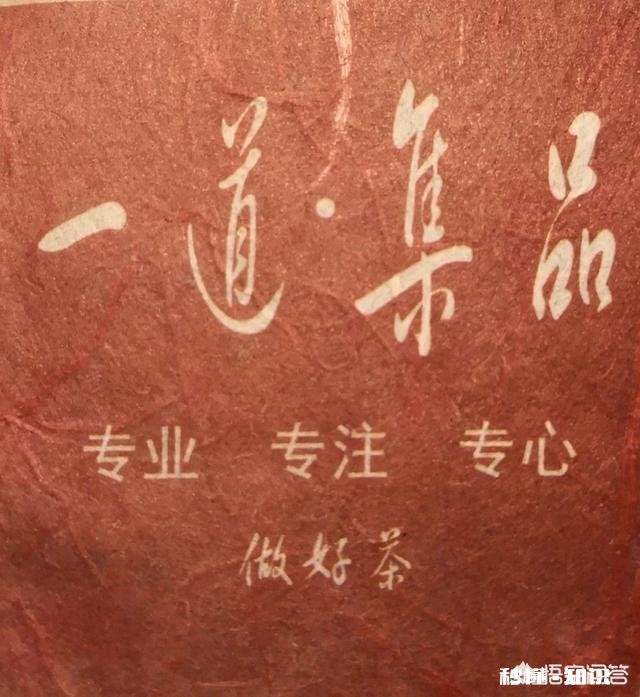 一道·集品
专业 专注 专心
做好茶
秒懂·知识
悟空问答